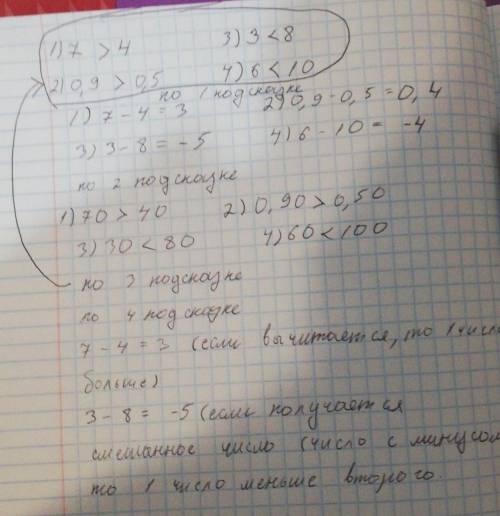 1) 7 > 4 3) 3 < 8
2) 0,9 > 0,5 4) 6 < 10
по 1 подсказке
1) 7 - 4 = 3 2) 0,9 - 0,5 = 0,4
3) 3 - 8 = -5 4) 6 - 10 = -4
по 2 подсказке
1) 70 > 40 2) 0,90 > 0,50
3) 30 < 80 4) 60 < 100
по 3 подсказке
по 4 подсказке
7 - 4 = 3 (если вычитается, то 1 число
больше)
3 - 8 = -5 (если получается
смешанное число (число с минусом
то 1 число меньше второго.